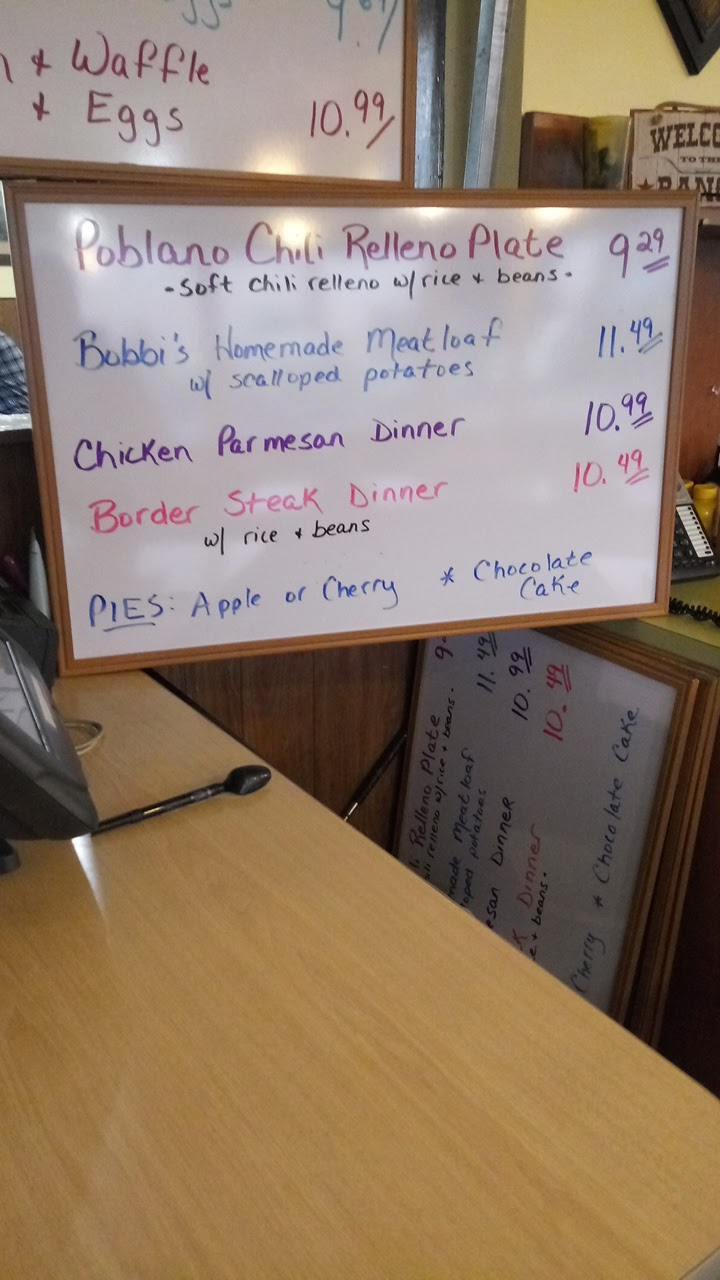 + Waffle
+ Eggs 10.99
WELCO
TO THE
Poblano Chili Relleno Plate 9 29
-Soft chili relleno w/rice + beans-
Bobbi's Homemade Meatloaf 11.49
w/ scalloped potatoes
Chicken Parmesan Dinner 10.99
Border Steak Dinner 10.49
w/ rice + beans
PIES: Apple or Cherry * Chocolate
Cake
Relleno Plate 9
relleno w/rice + beans.
made Meatloaf 11.49
loped potatoes
esan Dinner 10.99
K Dinner 10.49
e + beans.
Cherry * Chocolate Cake